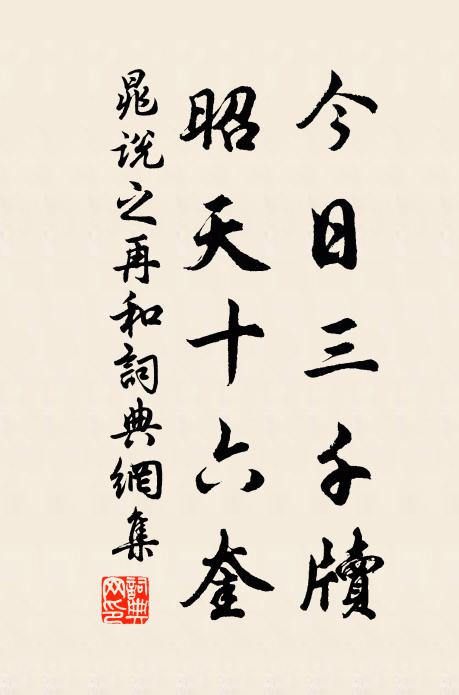 今日三千牘
昭天十六奎
晁說之再和詞典網集
詞典網印